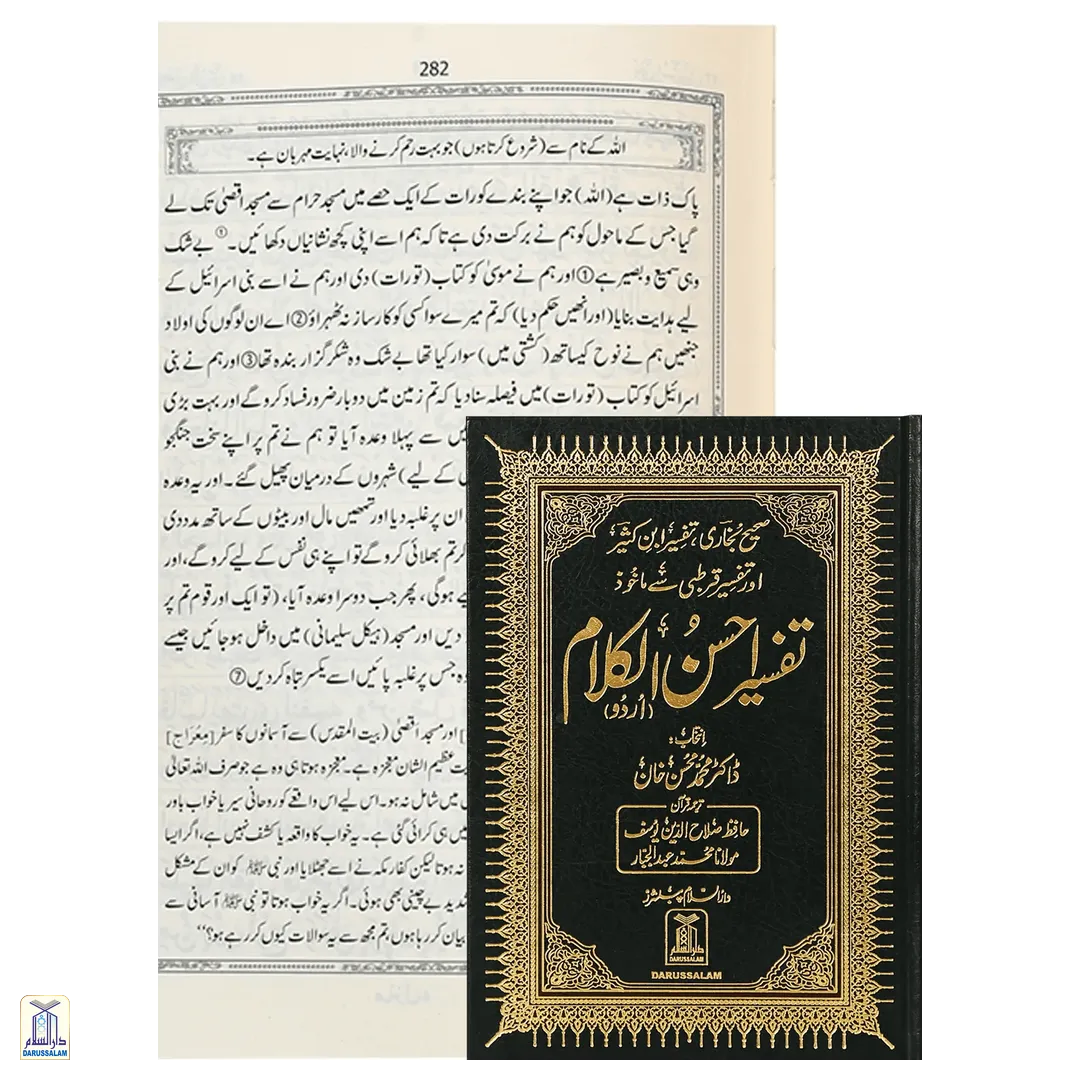 282
اللہ کے نام سے (شروع کرتا ہوں) جو بہت رحم کرنے والا، نہایت مہربان ہے۔
پاک ذات ہے (اللہ) جو اپنے بندے کو رات کے ایک حصے میں مسجد حرام سے مسجد اقصیٰ تک لے
گیا جس کے ماحول کو ہم نے برکت دی ہے تاکہ ہم اسے اپنی کچھ نشانیاں دکھائیں۔ ① بے شک
وہی سمیع و بصیر ہے ① اور ہم نے موسیٰ کو کتاب (تورات) دی اور ہم نے اسے بنی اسرائیل کے
لیے ہدایت بنایا (اور انھیں حکم دیا) کہ تم میرے سوا کسی کو کارساز نہ ٹھہراؤ ② اے ان لوگوں کی اولاد
جنھیں ہم نے نوح کیساتھ (کشتی میں) سوار کیا تھا بے شک وہ شکر گزار بندہ تھا ③ اور ہم نے بنی
اسرائیل کو کتاب (تورات) میں فیصلہ سنا دیا کہ تم زمین میں دوبار ضرور فساد کرو گے اور بہت بڑی
سے پہلا وعدہ آیا تو ہم نے تم پر اپنے سخت جنگجو
کے لیے) شہروں کے درمیان پھیل گئے۔ اور یہ وعدہ
ان پر غلبہ دیا اور تمھیں مال اور بیٹوں کے ساتھ مدد دی
تم بھلائی کرو گے تو اپنے ہی نفس کے لیے کرو گے، اور
ہوگی، پھر جب دوسرا وعدہ آیا، (تو ایک اور قوم تم پر
دیں اور مسجد (ہیکل سلیمانی) میں داخل ہو جائیں جیسے
جس پر غلبہ پائیں اسے یکسر تباہ کر دیں ⑦
اور مسجد اقصیٰ (بیت المقدس) سے آسمانوں کا سفر [معراج]
عظیم الشان معجزہ ہے۔ معجزہ ہوتا ہی وہ ہے جو صرف اللہ تعالیٰ
میں شامل نہ ہو۔ اس لیے اس واقعے کو روحانی سیر یا خواب باور
میں ہی کرائی گئی ہے۔ یہ خواب کا واقعہ یا کشف نہیں ہے، اگر ایسا
نہ ہوتا لیکن کفار مکہ نے اسے جھٹلایا اور نبی ﷺ کو ان کے مشکل
شدید بے چینی بھی ہوئی۔ اگر یہ خواب ہوتا تو نبی ﷺ آسانی سے
بیان کر رہا ہوں، تم مجھ سے یہ سوالات کیوں کر رہے ہو؟‘‘
صحیح بخاری، تفسیر ابن کثیر
اور تفسیر قرطبی سے ماخوذ
تفسیر احسن الکلام
(اردو)
انتخاب:
ڈاکٹر محمد محسن خان
ترجمہ قرآن
حافظ صلاح الدین یوسف
مولانا محمد عبدالجبار
دارالسلام پبلشرز
دارالسلام
DARUSSALAM
DARUSSALAM
دارالسلام
DARUSSALAM